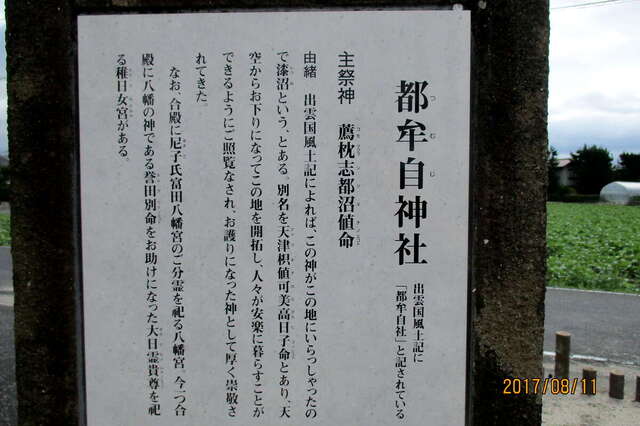 都牟自神社
出雲国風土記に
「都牟自社」と記されている
主祭神　薦枕志都沼値命
由緒　出雲国風土記によれば、この神がこの地にいらっしゃったの
で漆沼という、とある。別名を天津枳値可美高日子命とあり、天
空からお下りになってこの地を開拓し、人々が安楽に暮らすことが
できるようにご照覧なされ、お護りになった神として厚く崇敬さ
れてきた。
なお、合殿に尼子氏富田八幡宮のご分霊を祀る八幡宮。今二つ合
殿に八幡の神である誉田別命をお助けになった大日霊貴尊を祀
る稚日女宮がある。
2017/08/11